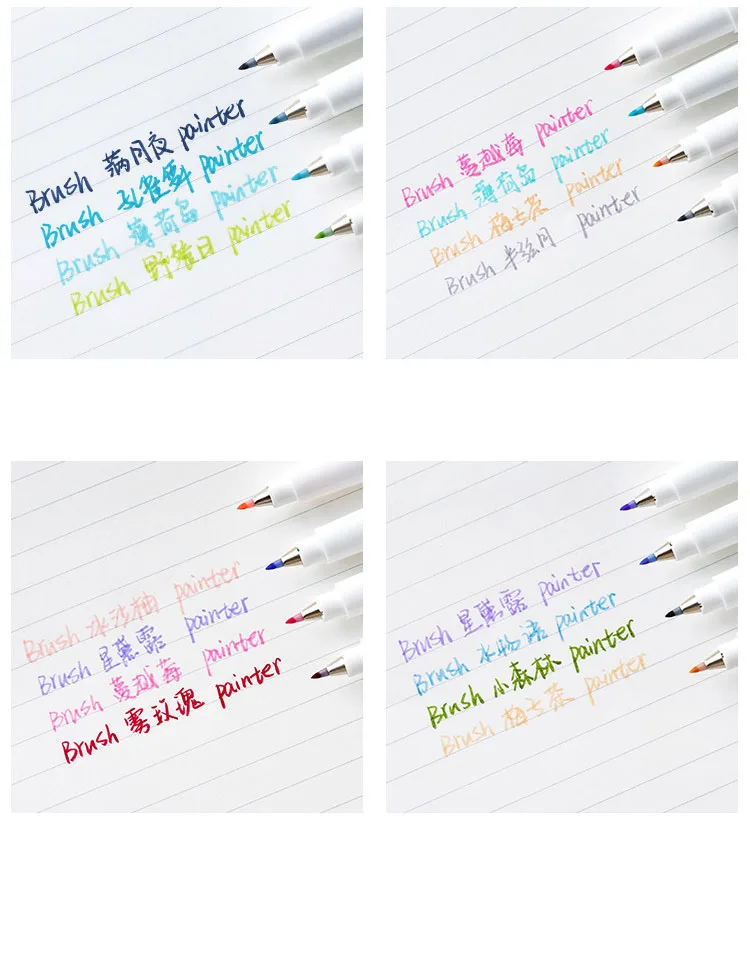 Brush 满月夜 painter
Brush 孔雀舞 painter
Brush 薄荷岛 painter
Brush 野餐日 painter
Brush 蔓越莓 painter
Brush 薄荷岛 painter
Brush 梅子茶 painter
Brush 半弦月 painter
Brush 冰沙柚 painter
Brush 星慕露 painter
Brush 蔓越莓 painter
Brush 雾玫瑰 painter
Brush 星慕露 painter
Brush 水物语 painter
Brush 小森林 painter
Brush 梅子茶 painter